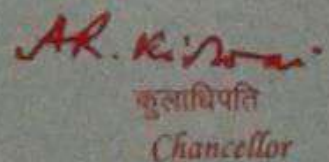 A.R. Kidwai
कुलाधिपति
Chancellor